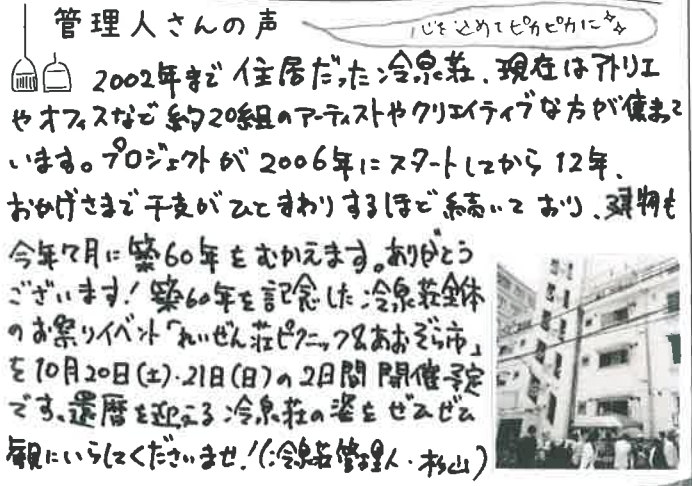 管理人さんの声
心を込めてピカピカに
2002年まで住居だった冷泉荘、現在はアトリエ
やオフィスなど約20組のアーティストやクリエイティブな方が集まって
います。プロジェクトが2006年にスタートしてから12年、
おかげさまで干支がひとまわりするほど続いており、建物も
今年7月に築60年をむかえます。ありがとう
ございます！築60年を記念した冷泉荘全体
のお祭りイベント「れいぜん荘ピクニック&あおぞら市」
を10月20日(土)・21日(日)の2日間開催予定
です。還暦を迎える冷泉荘の姿をぜひぜひ
観にいらしてくださいませ！(冷泉荘管理人・杉山)